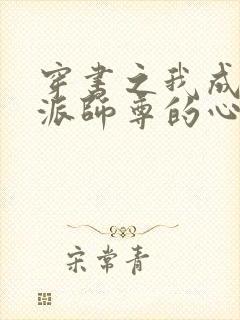 穿书之我成
派师尊的心
宋常青